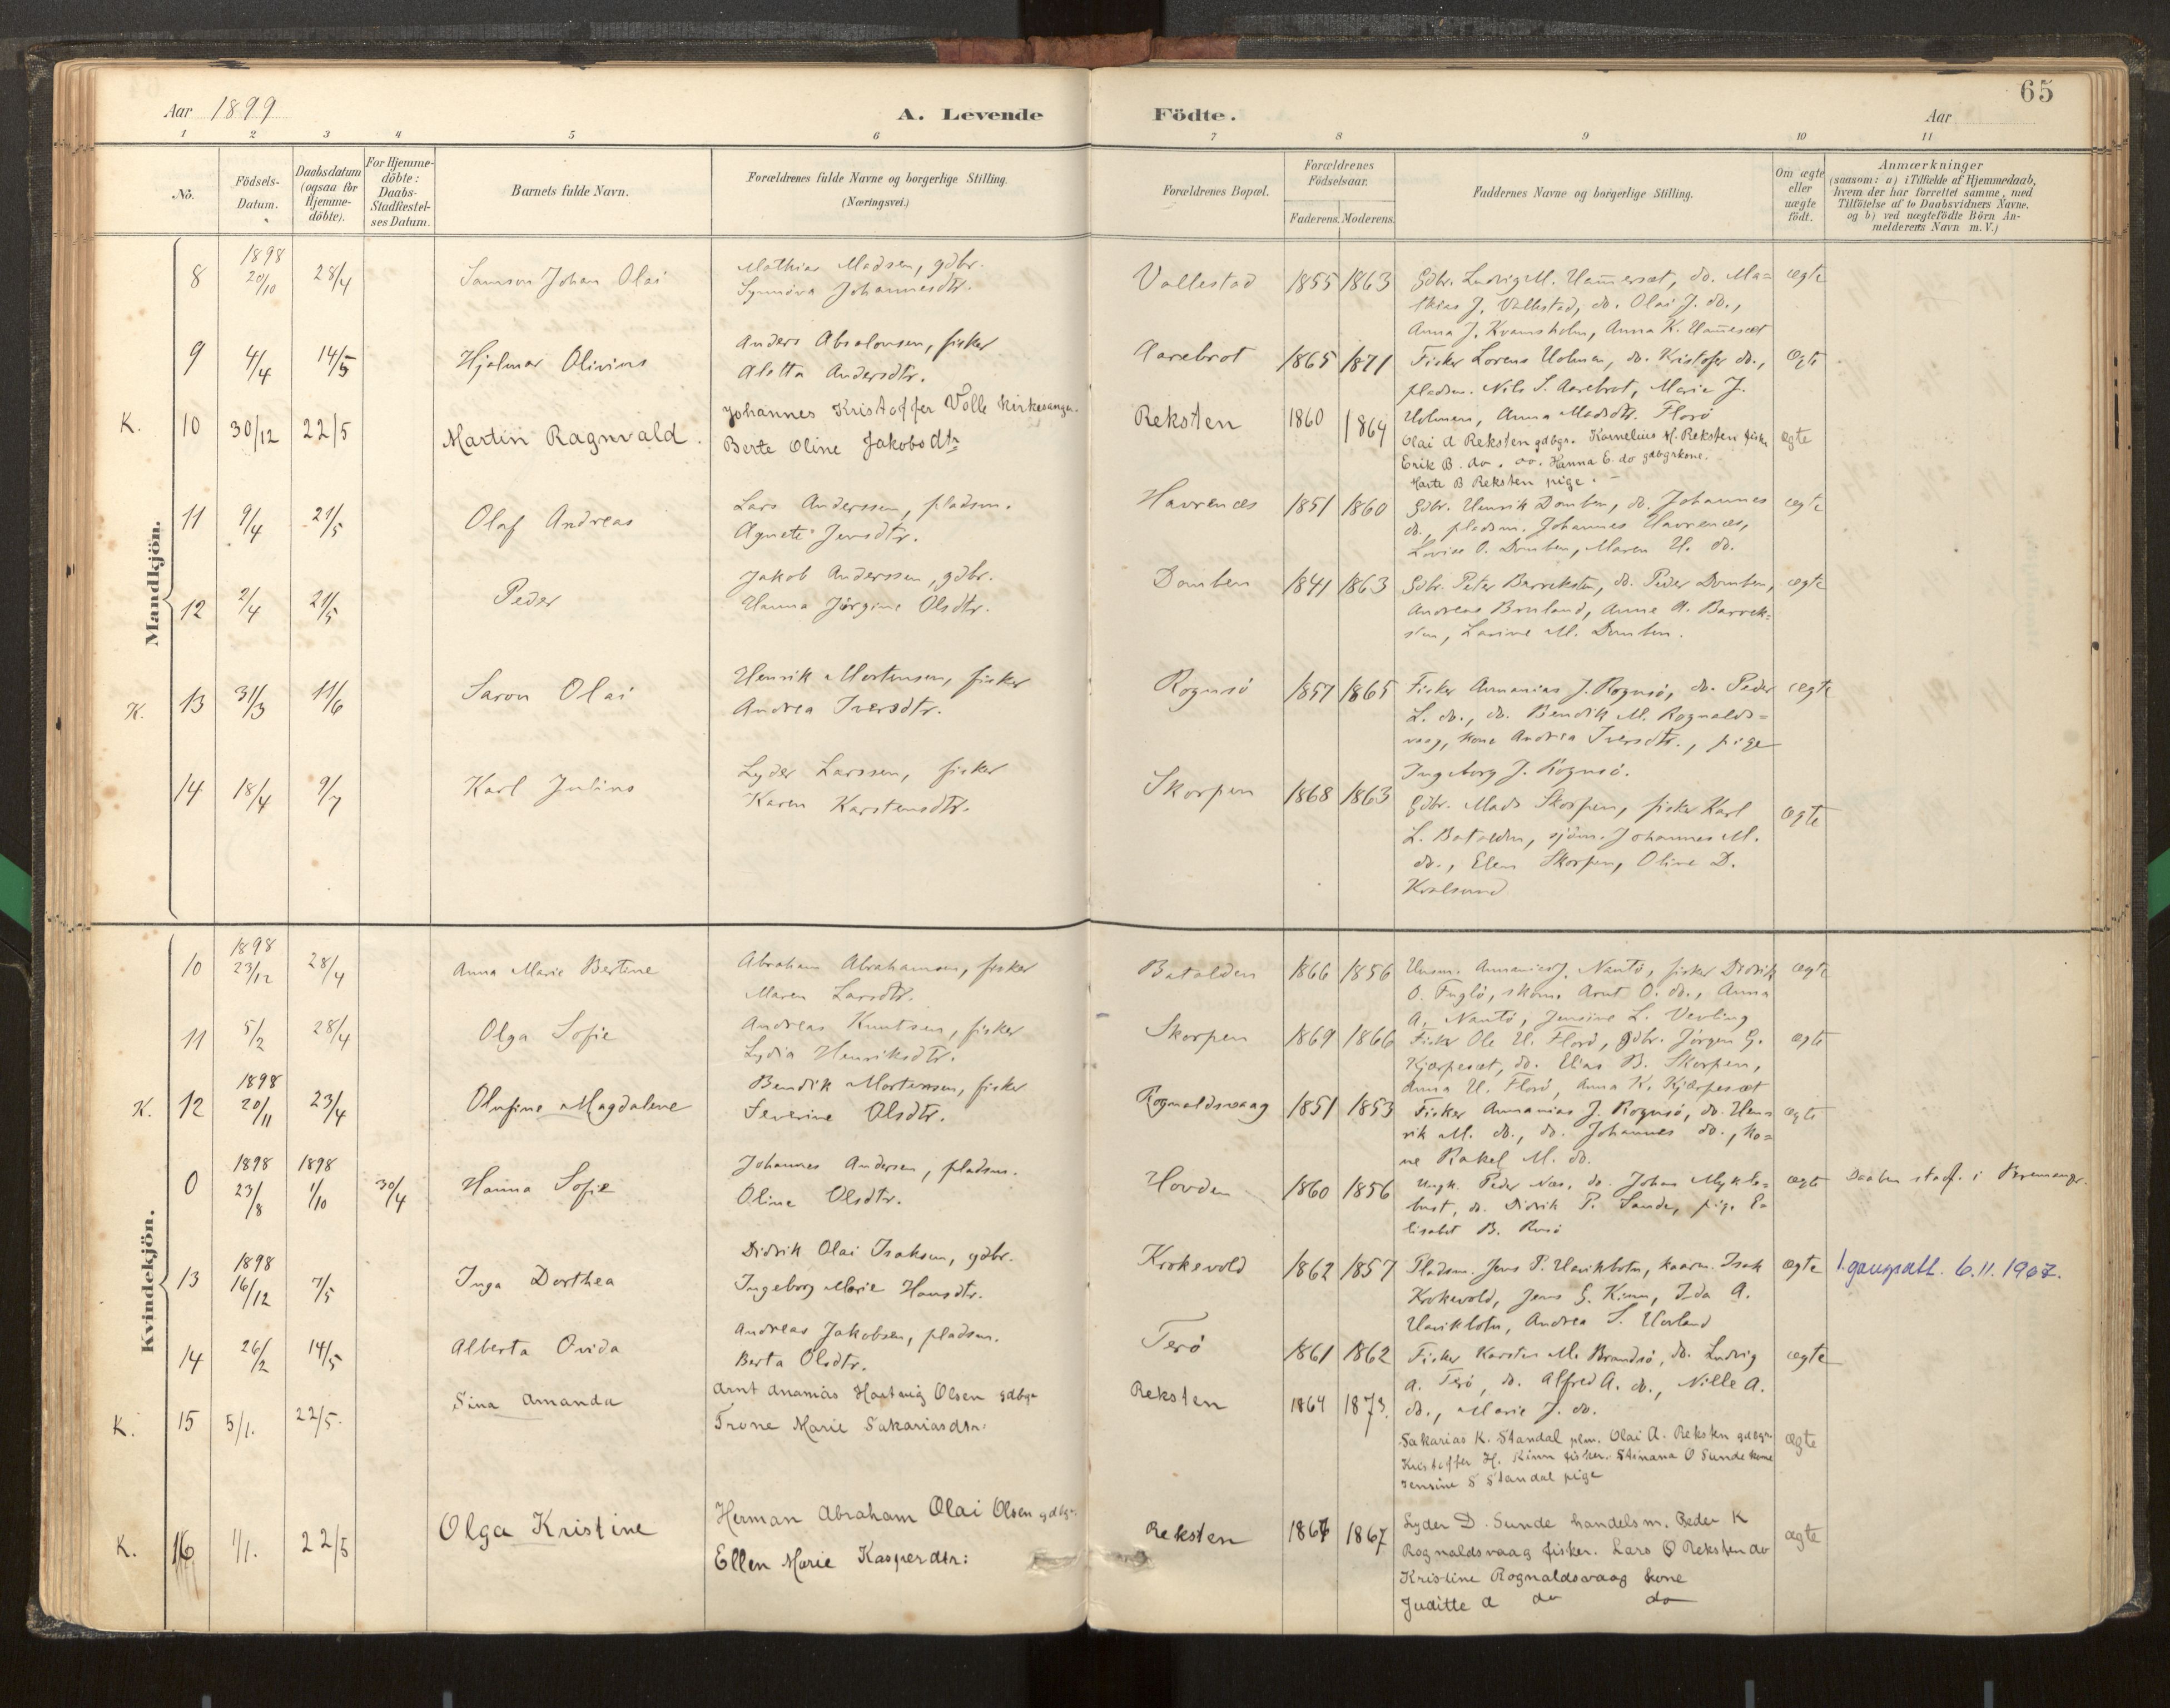 65
Aar 1899 A. Levende Födte. Aar
1 2 3 4 5 6 7 8 9 10 11
No. Födsels-Datum. Daabsdatum (ogsaa for Hjemme-döbte). For Hjemme-döbte: Daabs-Stadfæstel-ses Datum. Barnets fulde Navn. Forældrenes fulde Navne og borgerlige Stilling. (Næringsvei.) Forældrenes Bopæl. Forældrenes Födselsaar. Faderens. Moderens. Faddernes Navne og borgerlige Stilling. Om ægte eller uægte födt. Anmærkninger (saasom: a) i Tilfælde af Hjemmedaab, hvem der har forrettet samme, med Tilföielse af to Daabsvidners Navne, og b) ved uægtefödte Börn An-melderens Navn m. V.)
Mandkjön.
8 1898 20/10 28/4 Samson Johan Olai Mathias Madsen, gdbr. Vallestad 1855 1863 Gdbr. Ludvig M. Ham̄erset, do. Ma= ægte
Synnöva Johannesdtr. thias J. Vallestad, do. Olai J. do.,
Anna J. Kvamsholm, Anna K. Ham̄eset
9 4/4 14/5 Hjalmar Olivius Anders Absalonsen, fisker Aarebrot 1865 1871 Fisker Lorens Holmen, do. Kristofer do., ægte
Aletta Andersdtr. pladsm. Nils S. Aarebrot, Marie J.
Holmen, Anna Madsdtr. Florö
K. 10 30/12 22/5 Martin Ragnvald. Johannes Kristoffer Volle kirkesanger. Reksten 1860 1864 Olai A Reksten gdbgr. Kornelius H. Reksten fisker ægte
Berte Oline Jakobsdtr Erik B. do. do. Hanna E. do gdbgrkone.
Marte B Reksten pige.
11 9/4 21/5 Olaf Andreas Lars Anderssen, pladsm. Havrenæs 1851 1860 Gdbr. Henrik Domben, do. Johannes ægte
Agnete Jensdtr. do., pladsm. Johannes Havrenæs,
Lovise O. Domben, Maren H. do.
12 2/4 21/5 Peder Jakob Anderssen, gdbr. Domben 1841 1863 Gdbr. Peter Barreksten, do. Peder Domben, ægte
Hanna Jörgine Olsdtr. Andreas Bruland, Anne A. Barrek=
sten, Lavine M. Domben.
K. 13 31/3 11/6 Saron Olai Henrik Mortensen, fisker Rognsö 1857 1865 Fisker Annanias J. Rognsö, do. Peder ægte
Andrea Iversdtr. L. do., do. Bendik M. Rognalds=
vaag, kone Andrea Iversdtr., pige
Ingeborg J. Rognsö.
14 18/4 9/7 Karl Julius Lyder Larssen, fisker Skorpen 1868 1863 Gdbr. Mads Skorpen, fisker Karl ægte
Karen Karstensdtr. L. Batalden, sjöm. Johannes M.
do., Elen Skorpen, Oline D.
Kvalsund
Kvindekjön.
10 1898 23/12 28/4 Anna Marie Bertine Abraham Abrahamsen, fisker Batalden 1866 1856 Unsm. Annanias J. Nautö, fisker Didrik ægte
Maren Larsdtr. O. Fuglö, skom. Arnt O. do., Anna
A. Nautö, Jensine L. Vevling
11 5/2 28/4 Olga Sofie Andreas Knutsen, fisker Skorpen 1869 1866 Fisker Ole H. Florö, gdbr. Jörgen G. ægte
Lydia Henriksdtr. Kjærpesæt, do. Elias B. Skorpen,
Anna H. Florö, Anna K. Kjærpesæt
K. 12 1898 20/11 23/4 Olufine Magdalene Bendik Mortensen, fisker Rognaldsvaag 1851 1853 Fisker Annanias J. Rognsö, do. Hen= ægte
Severine Olsdtr. rik M. do., do. Johannes do., ko=
ne Rakel M. do.
0 1898 23/8 1898 1/10 30/4 Hanna Sofie Johannes Andersen, pladsm. Hovden 1860 1856 Ungk. Peder Næs, do. Johan Mykle= ægte Daaben stadf. i Bremanger.
Oline Olsdtr. bust, do. Didrik P. Sande, pige E=
lisabet B. Rusö
13 1898 16/12 7/5 Inga Dorthea Didrik Olai Isaksen, gdbr. Krokevold 1862 1857 Pladsm. Jens P. Havikbotn, kaarm. Isak ægte 1. gangsatt. 6.11.1967.
Ingeborg Marie Hansdtr. Krokevold, Jens G. Kinn, Ida A.
Havikbotn, Andrea S. Hovland
14 26/2 14/5 Alberta Ovida Andreas Jakobsen, pladsm. Terö 1861 1862 Fisker Karsten M. Brandsö, do. Ludvig ægte
Berta Olsdtr. A. Terö, do. Alfred A. do., Nille A.
do., Marie J. do.
K. 15 5/1. 22/5. Sina Amanda Arnt Ananias Hartvig Olsen gdbgr Reksten 1864 1873. Sakarias K. Standal plm. Olai A. Reksten gdbgr. ægte
Trone Marie Sakariasdtr: Kristoffer H. Kinn fisker. Stinana O Sunde kone
Jensine S Standal pige
K. 16 1/1. 22/5 Olga Kristine Herman Abraham Olai Olsen gdbgr. Reksten 1867 1867 Lyder D. Sunde handelsm. Peder K ægte
Ellen Marie Kasperdtr: Rognaldsvaag fisker. Lars O Reksten do
Kristine Rognaldsvaag kone
Juditte A do do